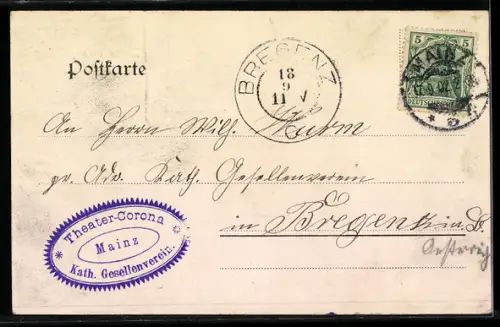 Postkarte
BREGENZ
18
9
11 V
5 5
DEUTSCHES
MAINZ
An Herrn Wilh. Wurm
pr. Adr. Kath. Gesellenverein
in Bregenz
Oestreich
* Theater-Corona *
Mainz
Kath. Gesellenverein.